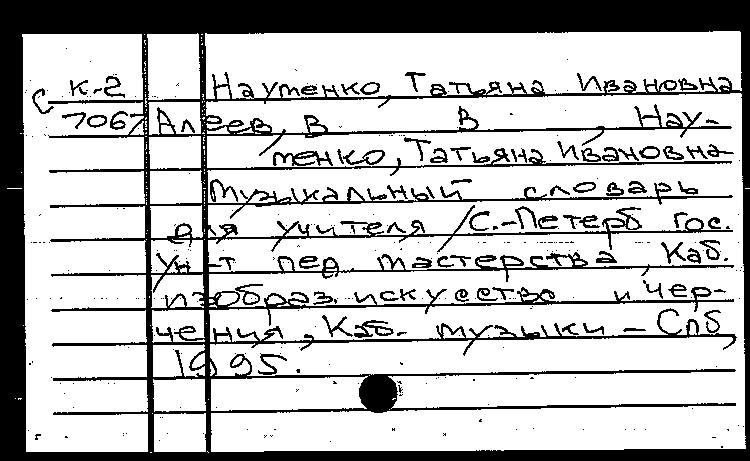 с к-2 Науменко, Татьяна Ивановна
7067 Алеев, В В , Нау-
менко, Татьяна Ивановна
Музыкальный словарь
для учителя /С.-Петерб гос.
Ун-т пед. мастерства, Каб.
изобраз. искусства и чер-
чения, Каб. музыки - Спб,
1995.